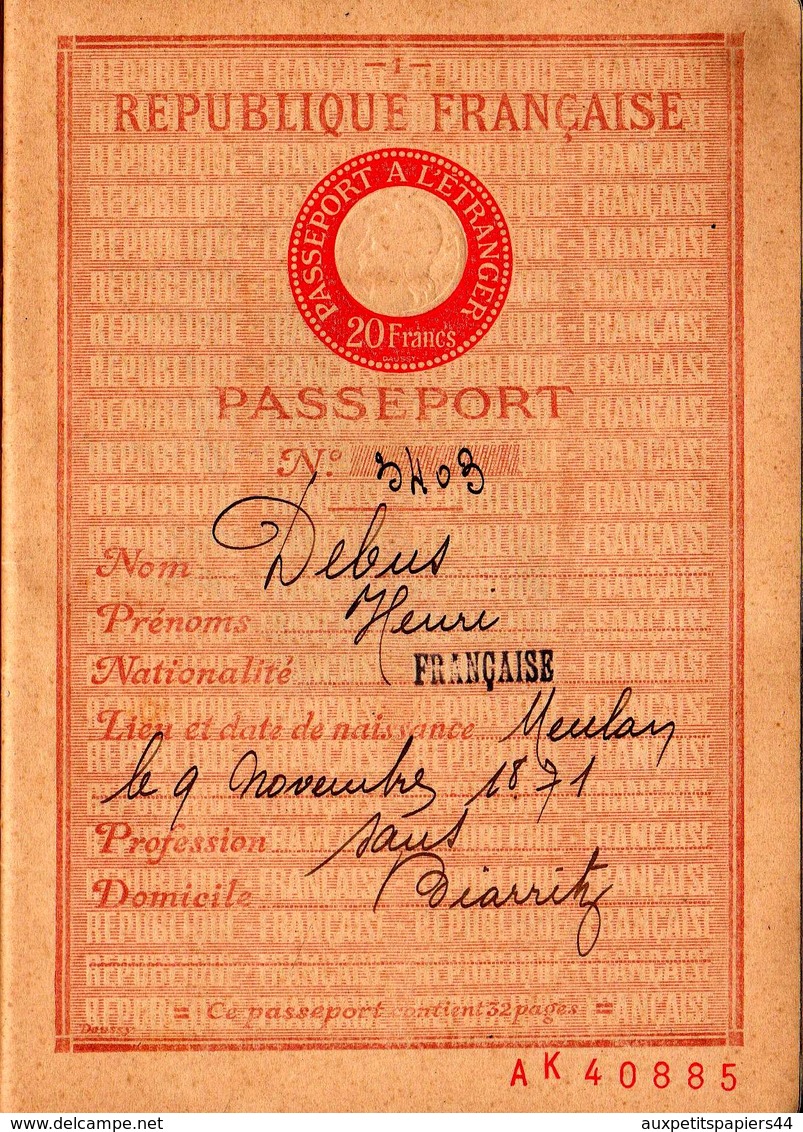 — 1 —
REPUBLIQUE FRANÇAISE
PASSEPORT A L'ETRANGER
20 Francs
DAUSSY
PASSEPORT
N° 3403
Nom Debus
Prénoms Henri
Nationalité FRANÇAISE
Lieu et date de naissance Meulan
le 9 novembre 1871
Profession sans
Domicile Biarritz
= Ce passeport contient 32 pages =
Daussy
AK 40885
auxpetitspapiers44